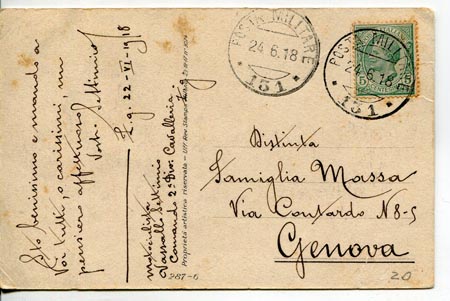 Sto benissimo e mando a
Voi tutti, o carissimi, un
pensiero affettuoso
Vostro Settimio
Z.g. 22-VI-1918
motociclista
Vassallo Settimio
Comando 2ª Div: Cavalleria
Z g
Proprietà artistica riservata - Uff. Rev. Stampa
287-6
POSTA MILITARE
24.6.18
131
POSTA MILITARE
24.6.18
131
5
5
CENT.
Distinta
Famiglia Massa
Via Contardo N 8-5
Genova
20